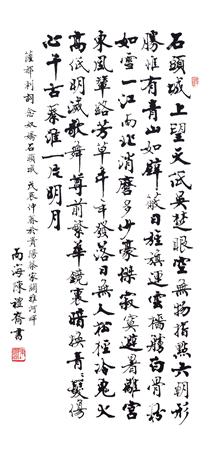 石頭城上望天低吳楚眼空無物指點六朝形
勝惟有青山如壁蔽日旌旗連雲檣艣白骨紛
如雪一江南北消磨多少豪傑寂寞避暑離宮
東風輦路芳草年年發落日無人松徑冷鬼火
高低明滅歌舞尊前繁華鏡裏暗換青青髮傷
心千古秦淮一片明月
薩都剌詞念奴嬌石頭城 戊辰仲春於貴陽蔡家關雅河畔
南海陳禮齋書